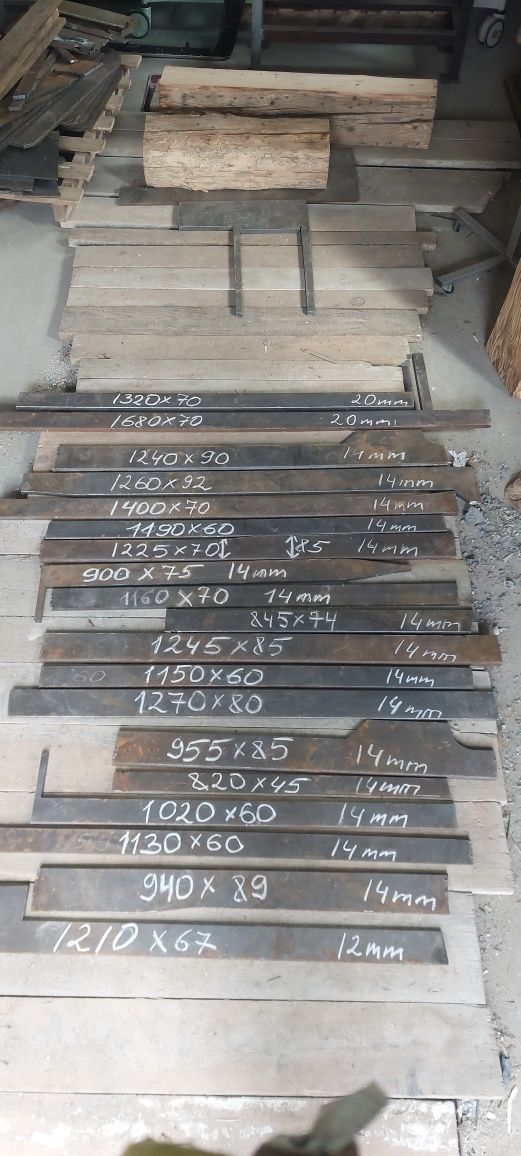 1320×70 20mm
1680×70 20mm
1240×90 14mm
1260×92 14mm
1400×70 14mm
1190×60 14mm
1225×70↕ ↕85 14mm
900×75 14mm
1160×70 14mm
845×74 14mm
1245×85 14mm
60 1150×60 14mm
1270×80 14mm
955×85 14mm
820×45 14mm
1020×60 14mm
1130×60 14mm
940×89 14mm
1210×67 12mm